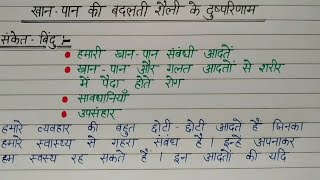 खान-पान की बदलती शैली के दुष्परिणाम
संकेत-बिंदु :-
हमारी खान-पान संबंधी आदतें
खान-पान और गलत आदतों से शरीर
में पैदा होते रोग
सावधानियाँ
उपसंहार
हमारे व्यवहार की बहुत छोटी-छोटी आदतें हैं जिनका
हमारे स्वास्थ्य से गहरा संबंध है। इन्हें अपनाकर
हम स्वस्थ रह सकते हैं। इन आदतों की यदि